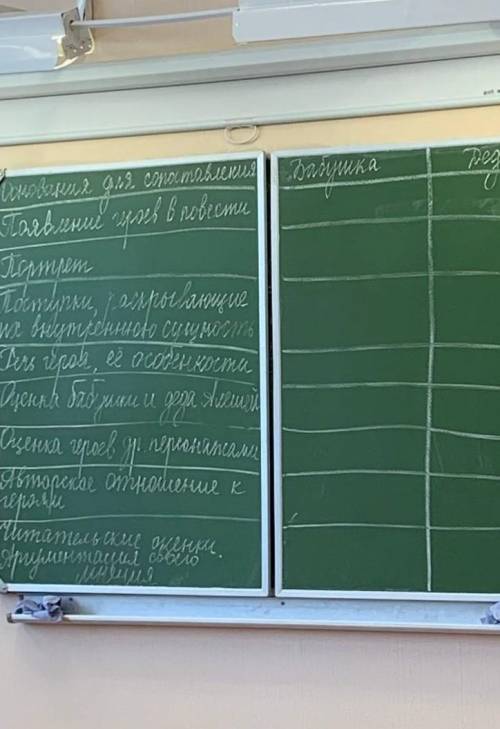 Основания для сопоставления
Появление героев в повести
Портрет
Поступки, раскрывающие
их внутреннюю сущность
Речь героя, её особенности
Оценка бабушки и деда Алёшей
Оценка героев др. персонажами
Авторское отношение к
героям
Читательские оценки.
Аргументация своего
мнения
Бабушка
Дед